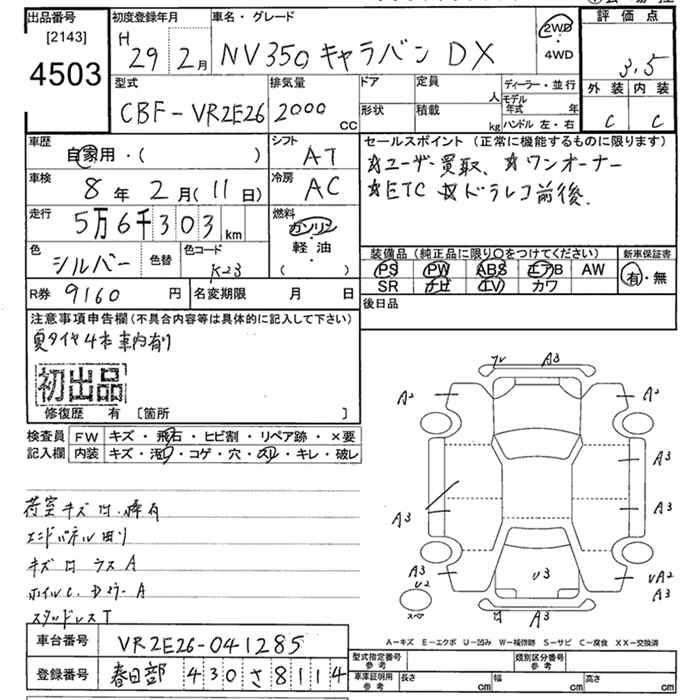 出品番号 初度登録年月 車名・グレード 2WD 評価点
[2143] H 29年 2月 NV350 キャラバン DX 4WD 3.5
4503
型式 排気量 ドア 定員 人 ディーラー・並行 外装 内装
CBF-VR2E26 2000cc 形状 積載 kg モデル年式 年 C C
ハンドル 左・右
車歴 自家用・( ) シフト AT セールスポイント (正常に機能するものに限ります)
☆ユーザー買取、☆ワンオーナー
車検 8年 2月 (11日) 冷房 AC ☆ETC ☆ドラレコ前後、
走行 5万6千303km 燃料 ガソリン
軽・油
( )
色 シルバー 色替 色コード K23
装備品 (純正品に限り○をつけてください) 新車保証書
PS PW ABS エアB AW 有・無
SR ナビ TV カワ
R券 9160円 名変期限 月 日 後日品
注意事項申告欄 (不具合内容等は具体的に記入して下さい)
夏タイヤ4本車内有り
初出品
修復歴 有 [箇所 ]
検査員 FW キズ・飛石・ヒビ割・リペア跡・×要
記入欄 内装 キズ・汚・コゲ・穴・スリ・キレ・破レ
フレ A3
A2 A2
A3
A3 A3
A3 U2 U3 UA2 A3
スペア A3
エンドパネル
キズ ウス A
スタッドレスT
A-キズ E-エクボ U-凹み W-補修跡 S-サビ C-腐食 XX-交換済
車台番号 VR2E26-041285
登録番号 春日部 430 さ 8114
型式指定番号 参考 類別区分番号 参考
車庫証明用 参考 長さ cm 幅 cm 高さ cm